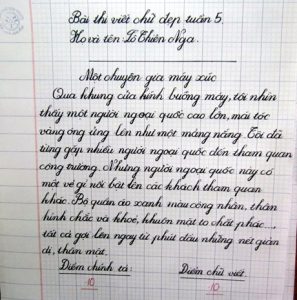 Bài thi viết chữ đẹp tuần 5.
Họ và tên: Tô Thiên Nga.
Một chuyên gia máy xúc
Qua khung cửa kính buồng máy, tôi nhìn
thấy một người ngoại quốc cao lớn, mái tóc
vàng óng ửng lên như một mảng nắng. Tôi đã
từng gặp nhiều người ngoại quốc đến tham quan
công trường. Nhưng người ngoại quốc này có
một vẻ gì nổi bật lên các khách tham quan
khác. Bộ quần áo xanh màu công nhân, thân
hình chắc và khoẻ, khuôn mặt to chất phác...,
tất cả gợi lên ngay từ phút đầu những nét giản
dị, thân mật.
Điểm chính tả: Điểm chữ viết:
10 10